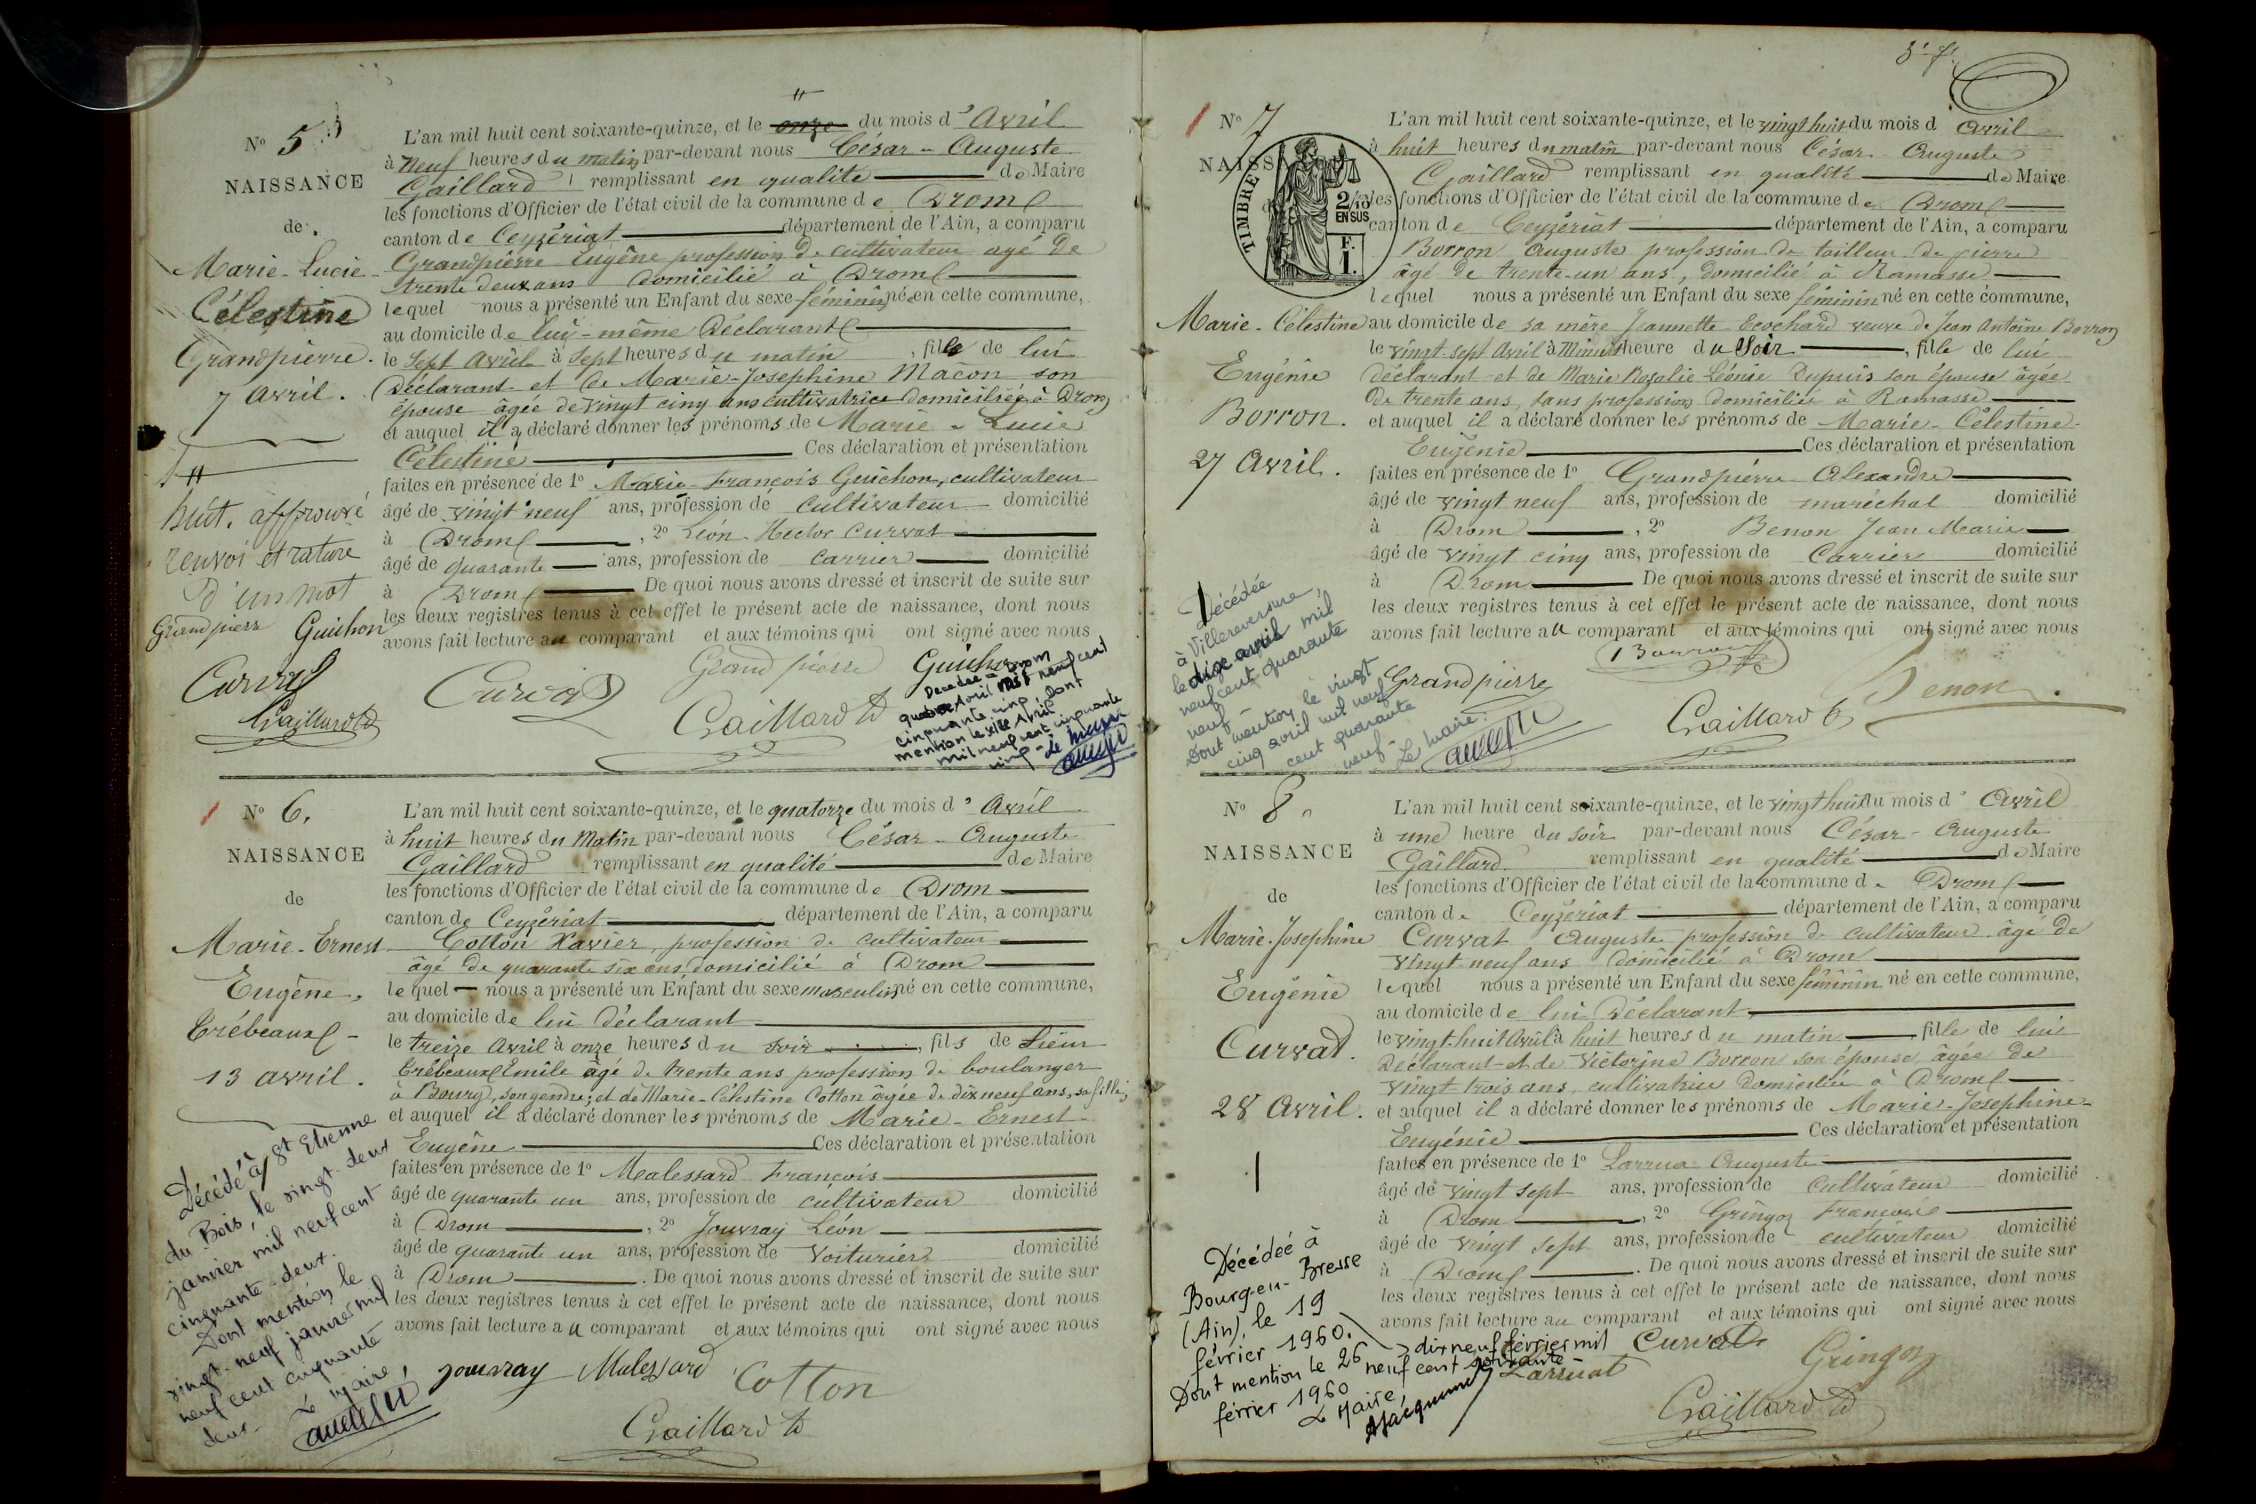 N° 5
NAISSANCE
de
Marie-Lucie
Célestine
Grandpierre.
7 Avril.
huit. approuvé
renvoi et rature
d'un mot
Grandpierre Guichon
Curvat
Gaillard
L'an mil huit cent soixante-quinze, et le onze du mois d'Avril
à neuf heures du matin par-devant nous César-Auguste
Gaillard remplissant en qualité de Maire
les fonctions d'Officier de l'état civil de la commune de Drom
canton de Ceyzériat département de l'Ain, a comparu
Grandpierre Eugène profession de cultivateur agé de
trente deux ans domicilié à Drom
lequel nous a présenté un Enfant du sexe féminin né en cette commune,
au domicile de lui-même Déclarant
le sept avril à sept heures du matin, fille de lui
Déclarant et de Marie-Josephine Macon son
épouse âgée de vingt cinq ans cultivatrice domiciliée à Drom
et auquel il a déclaré donner les prénoms de Marie-Lucie
Célestine Ces déclaration et présentation
faites en présence de 1° Marie-François Guichon, cultivateur
âgé de vingt neuf ans, profession de cultivateur domicilié
à Drom, 2° Léon Hector Curvat
âgé de quarante ans, profession de carrier domicilié
à Drom De quoi nous avons dressé et inscrit de suite sur
les deux registres tenus à cet effet le présent acte de naissance, dont nous
avons fait lecture au comparant et aux témoins qui ont signé avec nous
Grandpierre Guichon
Curvat
Gaillard
Décédée à Drom
quatre Avril mil neuf cent
cinquante cinq dont
mention le Avril
mil neuf cent cinquante
cinq - Le Maire
N° 6.
NAISSANCE
de
Marie-Ernest
Eugène,
Trébeaux
13 avril.
Décédé à St Etienne
du Bois, le vingt-deux
janvier mil neuf cent
cinquante-deux.
Dont mention le
vingt-neuf janvier mil
neuf cent cinquante
deux -
Le Maire,
L'an mil huit cent soixante-quinze, et le quatorze du mois d'Avril
à huit heures du Matin par-devant nous César-Auguste
Gaillard remplissant en qualité de Maire
les fonctions d'Officier de l'état civil de la commune de Drom
canton de Ceyzériat département de l'Ain, a comparu
Cotton Xavier, profession de cultivateur
âgé de quarante six ans, domicilié à Drom
lequel nous a présenté un Enfant du sexe masculin né en cette commune,
au domicile de lui Déclarant
le treize Avril à onze heures du soir, fils de Sieur
Trébeaux Emile âgé de trente ans profession de boulanger
à Bourg, son gendre; et de Marie-Célestine Cotton âgée de dix neuf ans, sa fille;
et auquel il a déclaré donner les prénoms de Marie-Ernest
Eugène Ces déclaration et présentation
faites en présence de 1° Malessard François
âgé de quarante un ans, profession de cultivateur domicilié
à Drom, 2° Jouvray Léon
âgé de quarante un ans, profession de Voiturier domicilié
à Drom. De quoi nous avons dressé et inscrit de suite sur
les deux registres tenus à cet effet le présent acte de naissance, dont nous
avons fait lecture au comparant et aux témoins qui ont signé avec nous
Jouvray Malessard Cotton
Gaillard
N° 7
NAISSA
TIMBRE
2/10
EN SUS
F.
1.
Marie-Célestine
Eugénie
Borron.
27 Avril.
Décédée
à Villereversure,
le dix avril mil
neuf cent quarante
neuf -
Dont mention le vingt
cinq avril mil neuf
cent quarante
neuf -
Le Maire:
L'an mil huit cent soixante-quinze, et le vingt huit du mois d'Avril
à huit heures du matin par-devant nous César Auguste
Gaillard remplissant en qualité de Maire
les fonctions d'Officier de l'état civil de la commune de Drom
canton de Ceyzériat département de l'Ain, a comparu
Borron Auguste profession de tailleur de pierre
âgé de trente-un ans, domicilié à Ramasse
lequel nous a présenté un Enfant du sexe féminin né en cette commune,
au domicile de sa mère Jeannette Ecochard veuve de Jean Antoine Borron
le vingt-sept Avril à Minuit heure du Soir, fille de lui
déclarant et de Marie Rosalie Léonie Dupuis son épouse âgée
de trente ans, sans profession domiciliée à Ramasse
et auquel il a déclaré donner les prénoms de Marie-Célestine-
Eugénie Ces déclaration et présentation
faites en présence de 1° Grandpierre Alexandre
âgé de vingt neuf ans, profession de maréchal domicilié
à Drom, 2° Benon Jean Marie
âgé de vingt cinq ans, profession de Carrier domicilié
à Drom De quoi nous avons dressé et inscrit de suite sur
les deux registres tenus à cet effet le présent acte de naissance, dont nous
avons fait lecture au comparant et aux témoins qui ont signé avec nous
Grandpierre Borron
Gaillard Benon
N° 8
NAISSANCE
de
Marie-Josephine
Eugénie
Curvat.
28 Avril.
Décédée à
Bourg-en-Bresse
(Ain), le 19
février 1960.
Dont mention le 26
février 1960
Le Maire
dix neuf février mil
neuf cent soixante
L'an mil huit cent soixante-quinze, et le vingt huit du mois d'Avril
à une heure du soir par-devant nous César-Auguste
Gaillard remplissant en qualité de Maire
les fonctions d'Officier de l'état civil de la commune de Drom
canton de Ceyzériat département de l'Ain, a comparu
Curvat Auguste profession de cultivateur âgé de
vingt-neuf ans domicilié à Drom
lequel nous a présenté un Enfant du sexe féminin né en cette commune,
au domicile de lui Déclarant
le vingt-huit Avril à huit heures du matin fille de lui
Déclarant et de Victorine Borron son épouse, âgée de
vingt trois ans, cultivatrice domiciliée à Drom
et auquel il a déclaré donner les prénoms de Marie-Josephine-
Eugénie Ces déclaration et présentation
faites en présence de 1° Larrua Auguste
âgé de vingt sept ans, profession de cultivateur domicilié
à Drom, 2° Gringoz François
âgé de vingt sept ans, profession de cultivateur domicilié
à Drom. De quoi nous avons dressé et inscrit de suite sur
les deux registres tenus à cet effet le présent acte de naissance, dont nous
avons fait lecture au comparant et aux témoins qui ont signé avec nous
Curvat
Larruat Gringoz
Gaillard